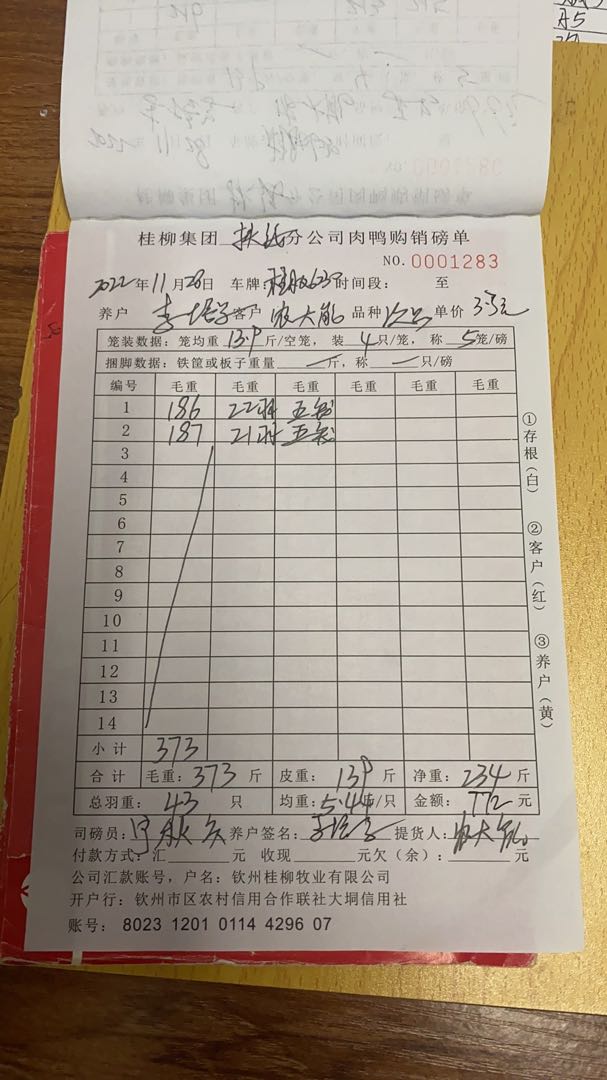 桂柳集团 分公司肉鸭购销磅单
NO.0001283
2022年11月28日 车牌: 时间段: 至
养户 李 客户 农大能 品种 次品 单价 3.3元
笼装数据:笼均重 13.9 斤/空笼,装 4 只/笼,称 5 笼/磅
捆脚数据:铁筐或板子重量 — 斤,称 — 只/磅
编号 毛重 毛重 毛重 毛重 毛重 毛重
1 186 22羽 五笼
2 187 21羽 五笼
3
4
5
6
7
8
9
10
11
12
13
14
小计 373
合计 毛重:373 斤 皮重:139 斤 净重:234 斤
总羽重: 43 只 均重:5.44斤/只 金额:772 元
司磅员: 养户签名:李 提货人:农大能
付款方式:汇 元 收现 元欠(余): 元
公司汇款账号,户名:钦州桂柳牧业有限公司
开户行:钦州市区农村信用合作联社大垌信用社
账号: 8023 1201 0114 4296 07
①存根(白)
②客户(红)
③养户(黄)